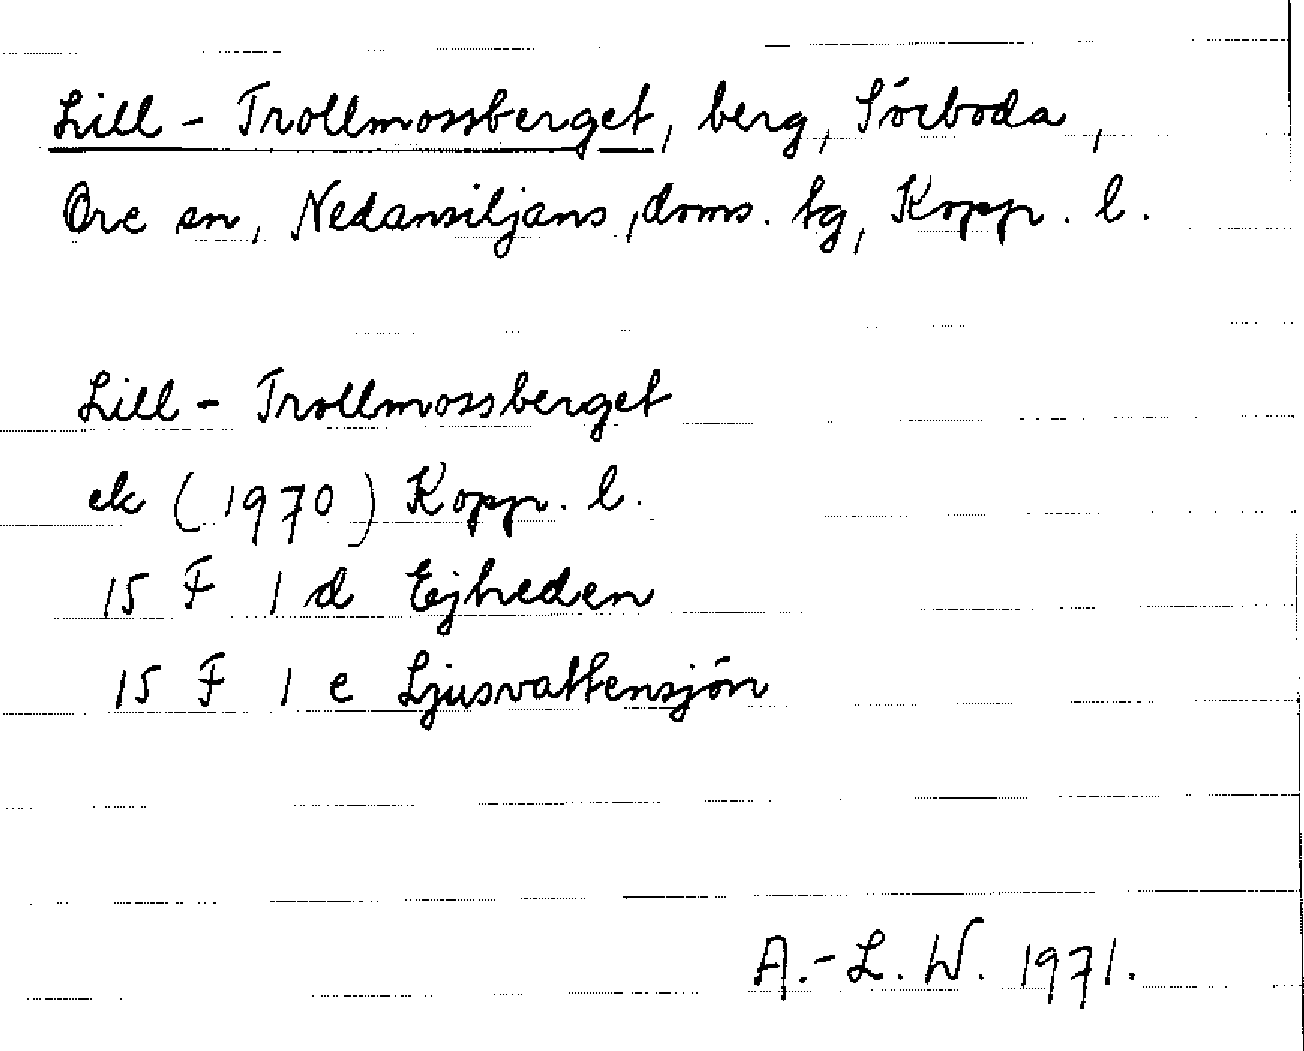 Lill-Trollmossberget, berg, Sörboda,
Ore sn, Nedansiljans, doms. tg, Kopp. l.
Lill-Trollmossberget
ek (1970) Kopp. l.
15 F 1 d Ejheden
15 F 1 e Ljusvattensjön
A.-L. W. 1971.